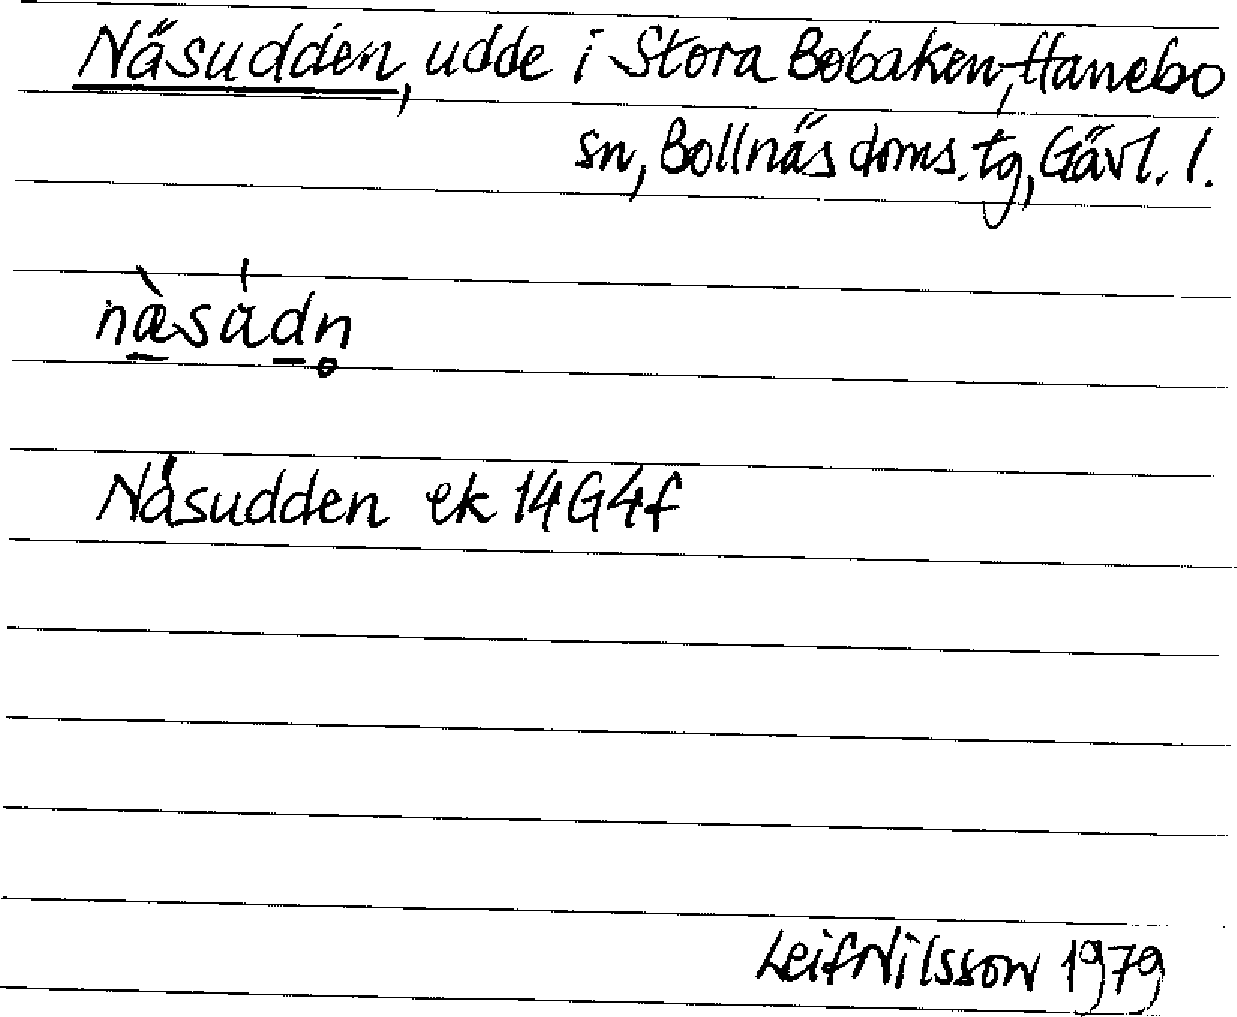 Näsudden, udde i Stora Bobaken, Hanebo
sn, Bollnäs doms. tg, Gävl. l.
Näsudden ek 14G4f
Leif Nilsson 1979